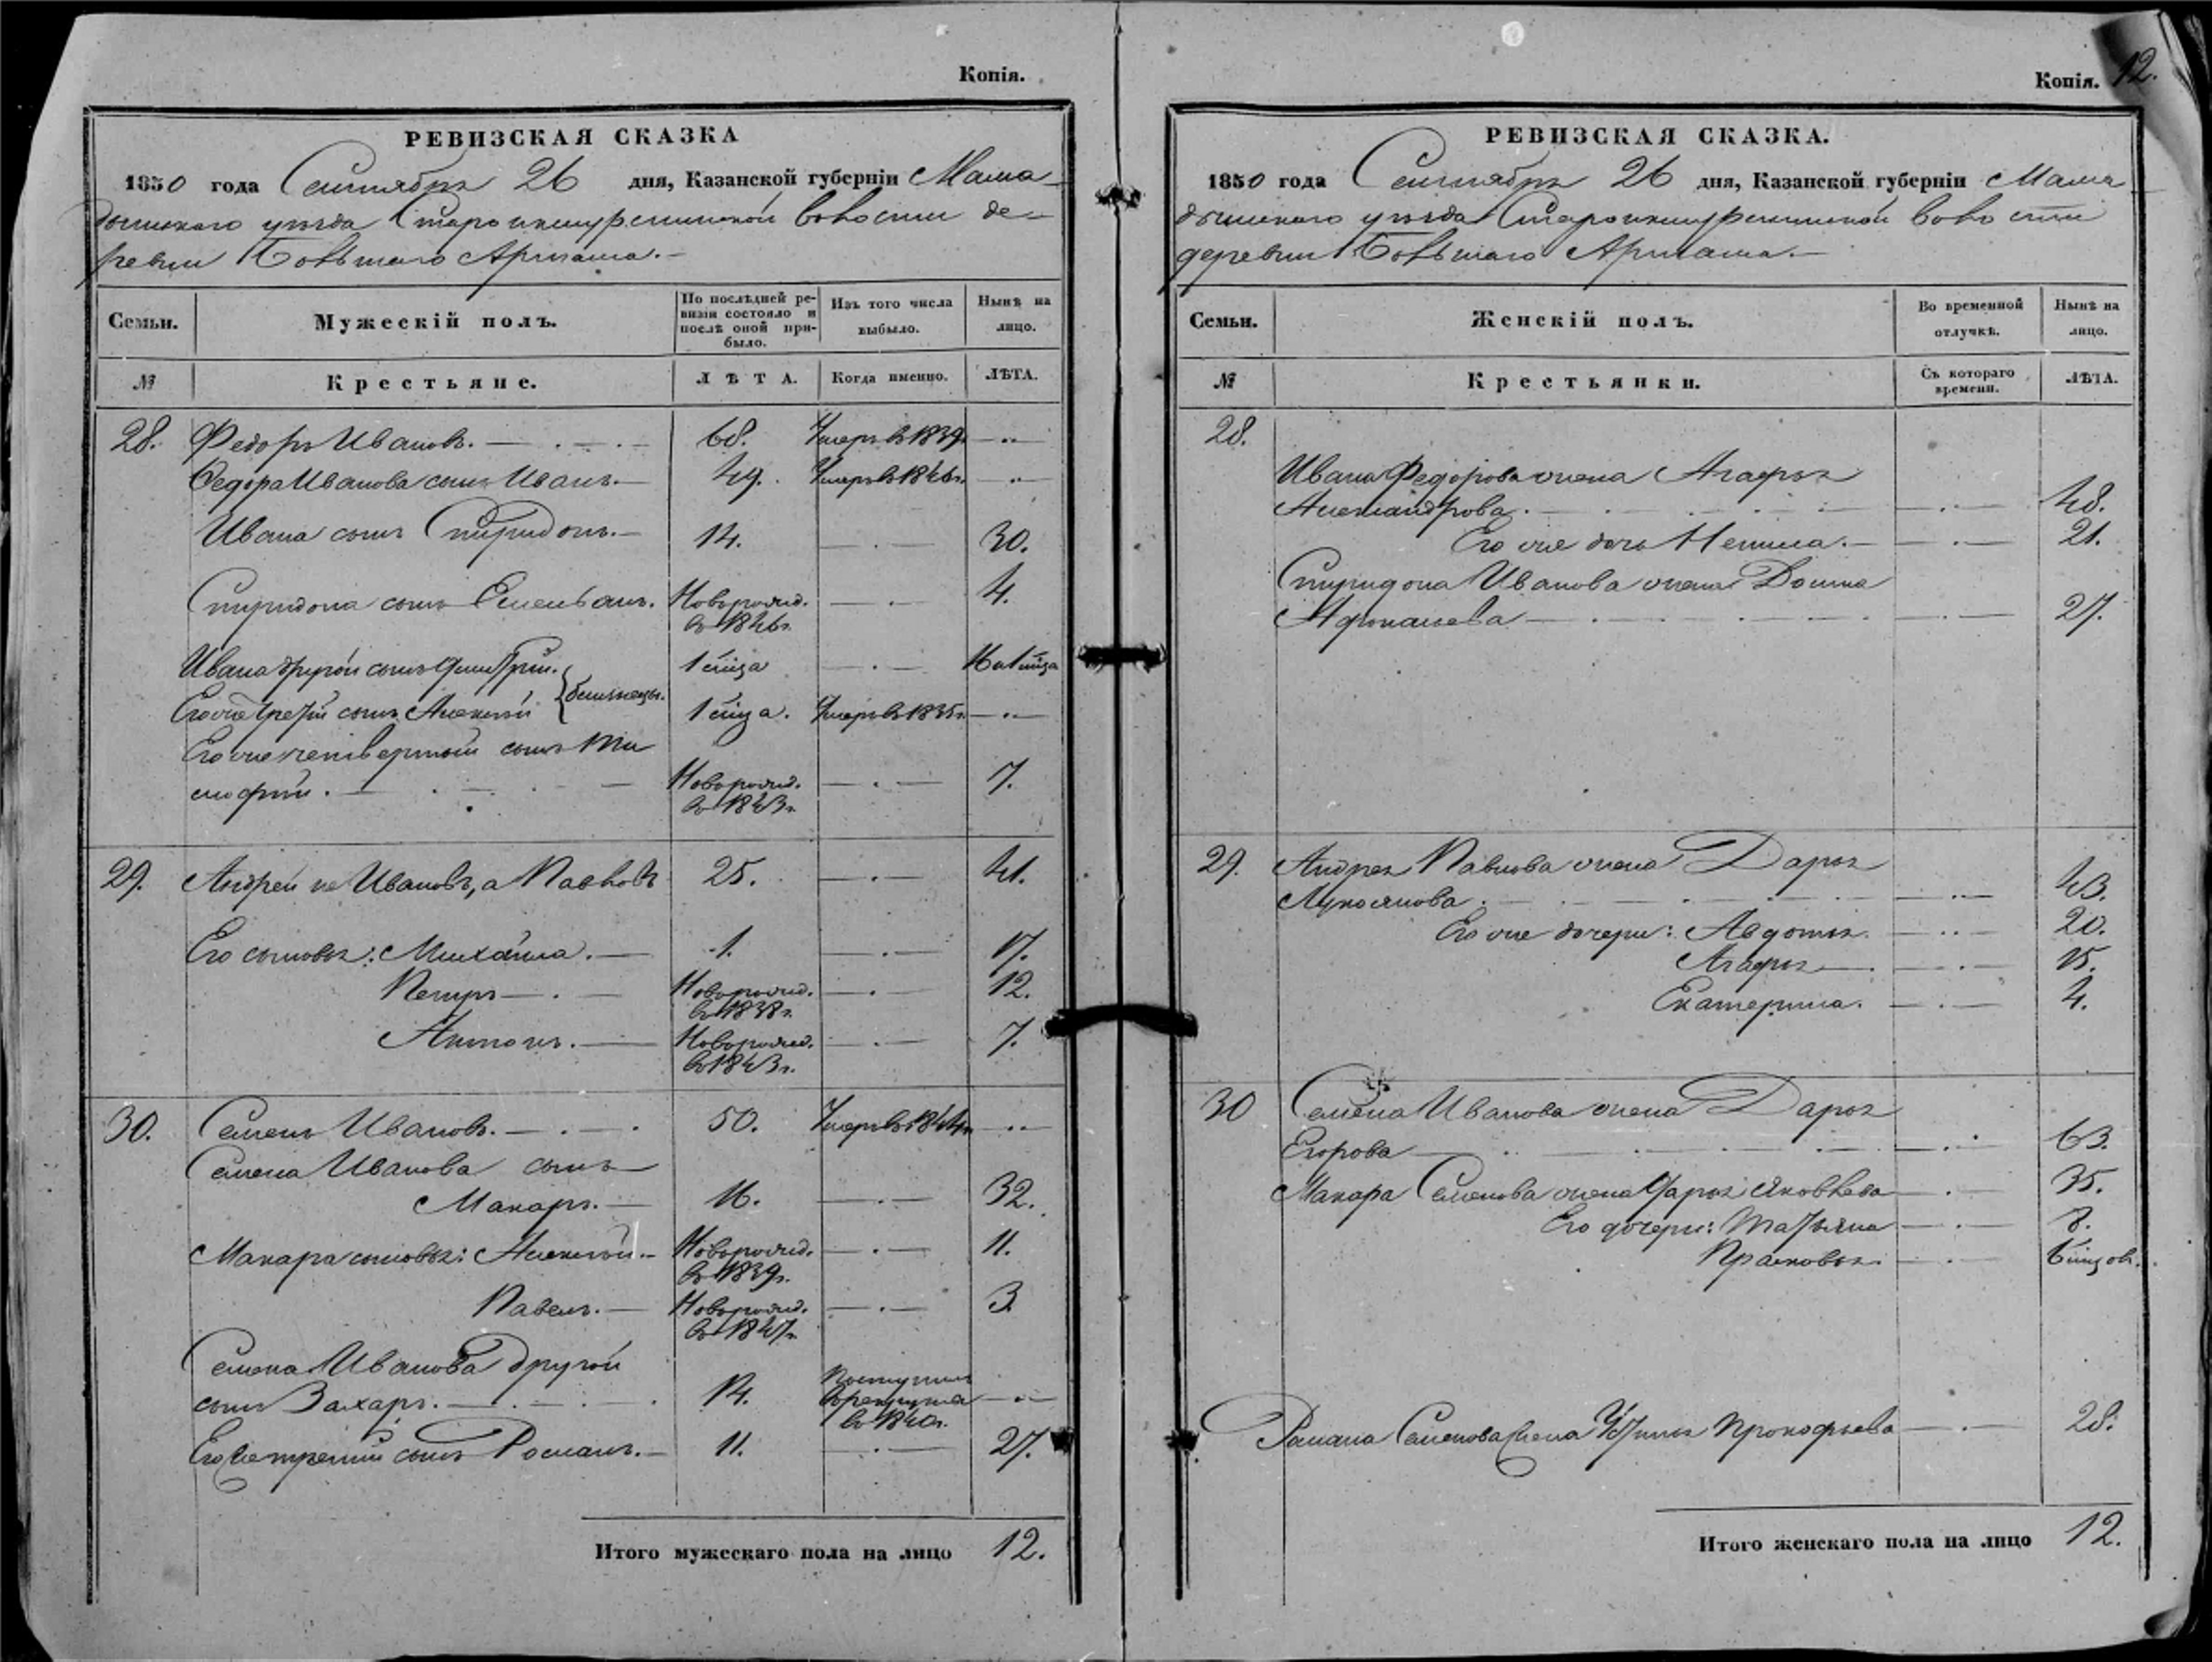 Копія.
РЕВИЗСКАЯ СКАЗКА
1850 года Сентября 26 дня, Казанской губерніи Мама-
дышскаго уѣзда Староикшурминской волости де-
ревни Большаго Арташа.
Семьи.
Мужескій полъ.
По послѣдней ре-
визіи состояло и
послѣ оной при-
было.
Изъ того числа
выбыло.
Нынѣ на
лицо.
№
Крестьяне.
ЛѢТА.
Когда именно.
ЛѢТА.
28. Федоръ Ивановъ. 68. Умеръ в 1839
Федора Иванова сынъ Иванъ. 49. Умеръ в 1846г.
Ивана сынъ Спиридонъ. 14. 30.
Спиридона сынъ Емельянъ. Новорожд. 4.
в 1846г.
Ивана другой сынъ Дмитрій. 1 мѣсяца 16 а 1 мѣсяца
Его же третій сынъ Алексѣй близнецы. 1 мѣсяца. Умеръ в 1835г.
Его же четвертый сынъ Ти
мофей. Новорожд. 7.
в 1843г.
29. Андрей не Ивановъ, а Павловъ 25. 41.
Его сыновья: Михайла. 1. 17.
Петръ Новорожд. 12.
в 1838г.
Антонъ. Новорожд. 7.
в 1843г.
30. Семенъ Ивановъ. 50. Умеръ в 1844г.
Семена Иванова сынъ
Макаръ. 16. 32.
Макара сыновья: Алексѣй. Новорожд. 11.
в 1839г.
Павелъ. Новорожд. 3
в 1847г.
Семена Иванова другой
сынъ Захаръ. 14. Поступилъ
в рекруты
в 1840г.
Его же третій сынъ Романъ. 11. 27.
Итого мужескаго пола на лицо 12.
Копія. 12.
РЕВИЗСКАЯ СКАЗКА.
1850 года Сентября 26 дня, Казанской губерніи Мама
дышскаго уѣзда Староикшурминской волости
деревни Большаго Арташа.
Семьи.
Женскій полъ.
Во временной
отлучкѣ.
Нынѣ на
лицо.
№
Крестьянки.
Съ котораго
времени.
ЛѢТА.
28.
Ивана Федорова жена Агафья
Александрова. 48.
Его же дочь Ненила. 21.
Спиридона Иванова жена Домна
Афонасьева 27.
29. Андрея Павлова жена Дарья
Лукоянова. 43.
Его же дочери: Авдотья 20.
Агафья 15.
Екатерина. 4.
30 Семена Иванова жена Дарья
Егорова 63.
Макара Семенова жена Дарья Яковлева 35.
Его дочери: Татьяна 8.
Прасковья. 6 мѣсяцов.
Романа Семенова жена Устинья Прокофьева 28.
Итого женскаго пола на лицо 12.